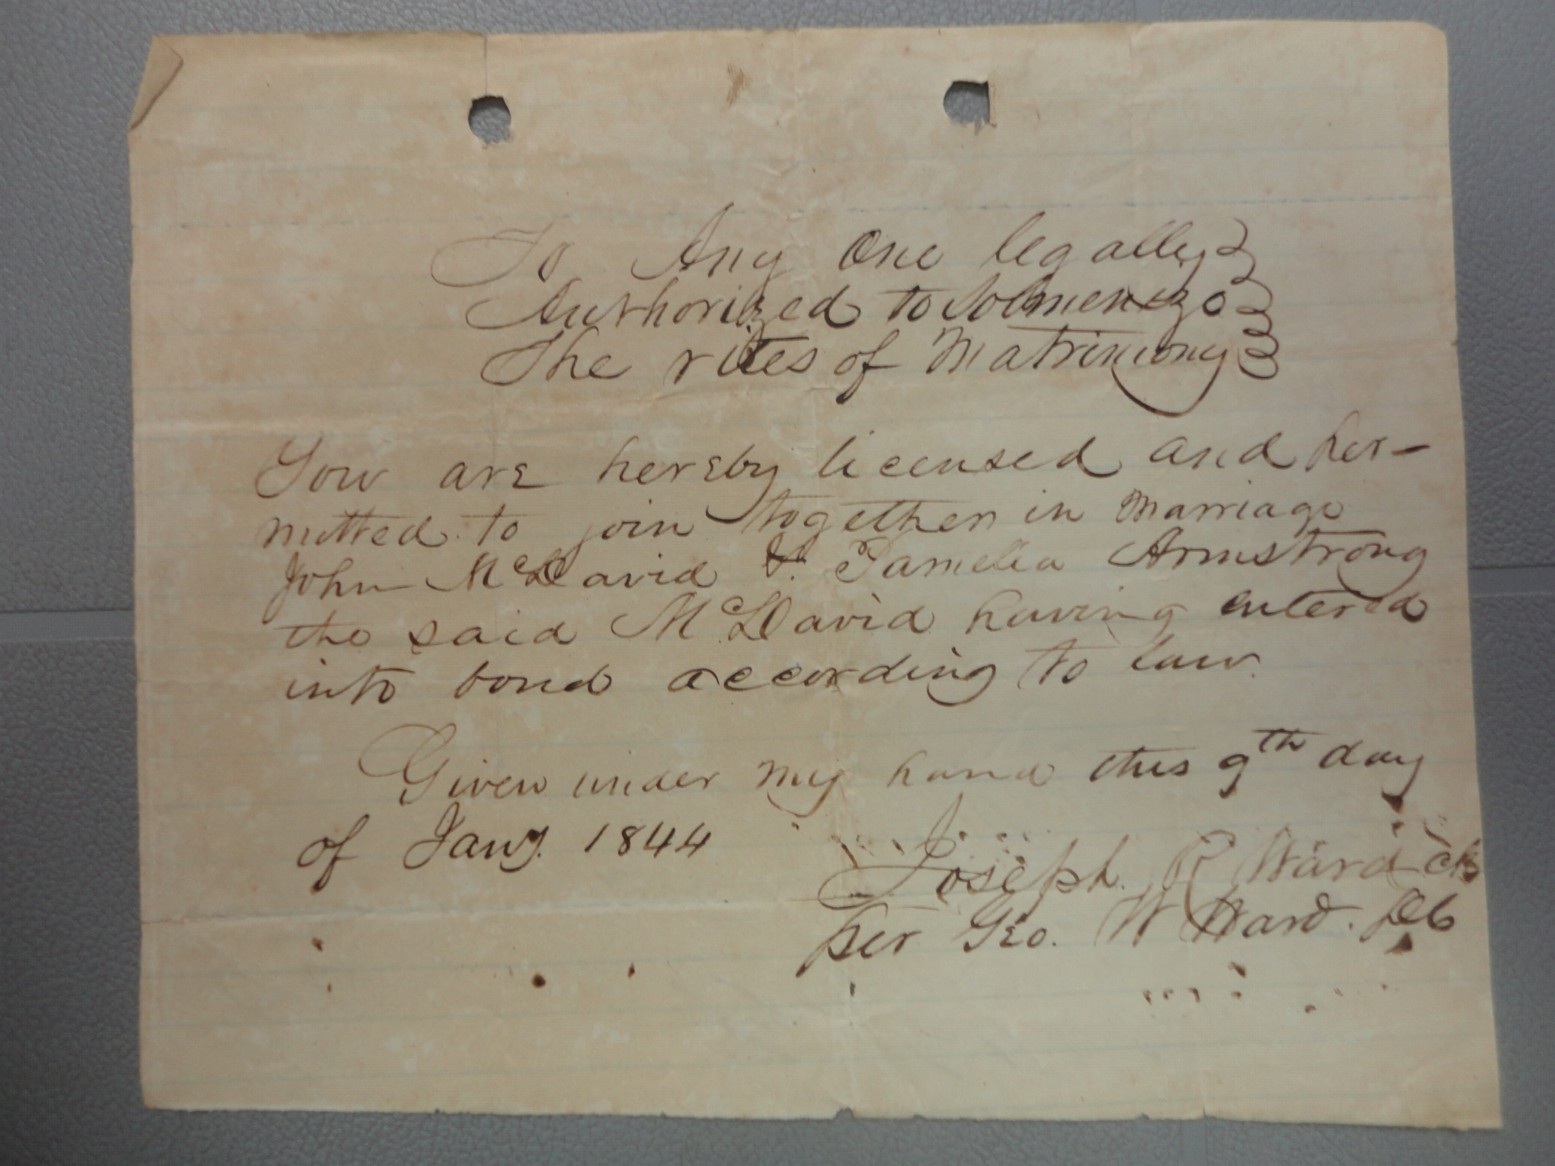 To Any One legally
Authorized to Solmenizo
The rites of Matrimony
You are hereby licensed and per-
mitted to join together in Marriage
John McDavid & Pamelia Armstrong
the said McDavid having entered
into bond according to law.
Given under my hand this 9th day
of Jany. 1844
Joseph R Ward Clk
per Geo. W Ward. DC